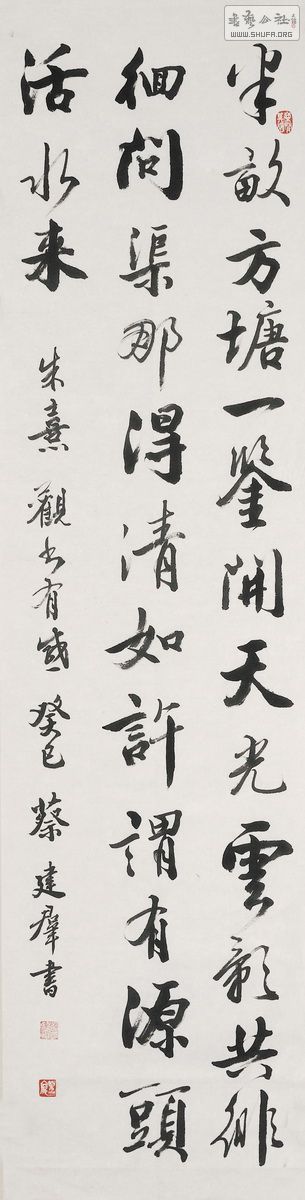 半畝方塘一鑒開天光雲影共徘
徊問渠那得清如許謂有源頭
活水来
朱熹觀書有感癸巳蔡建群書
書藝公社
WWW.SHUFA.ORG